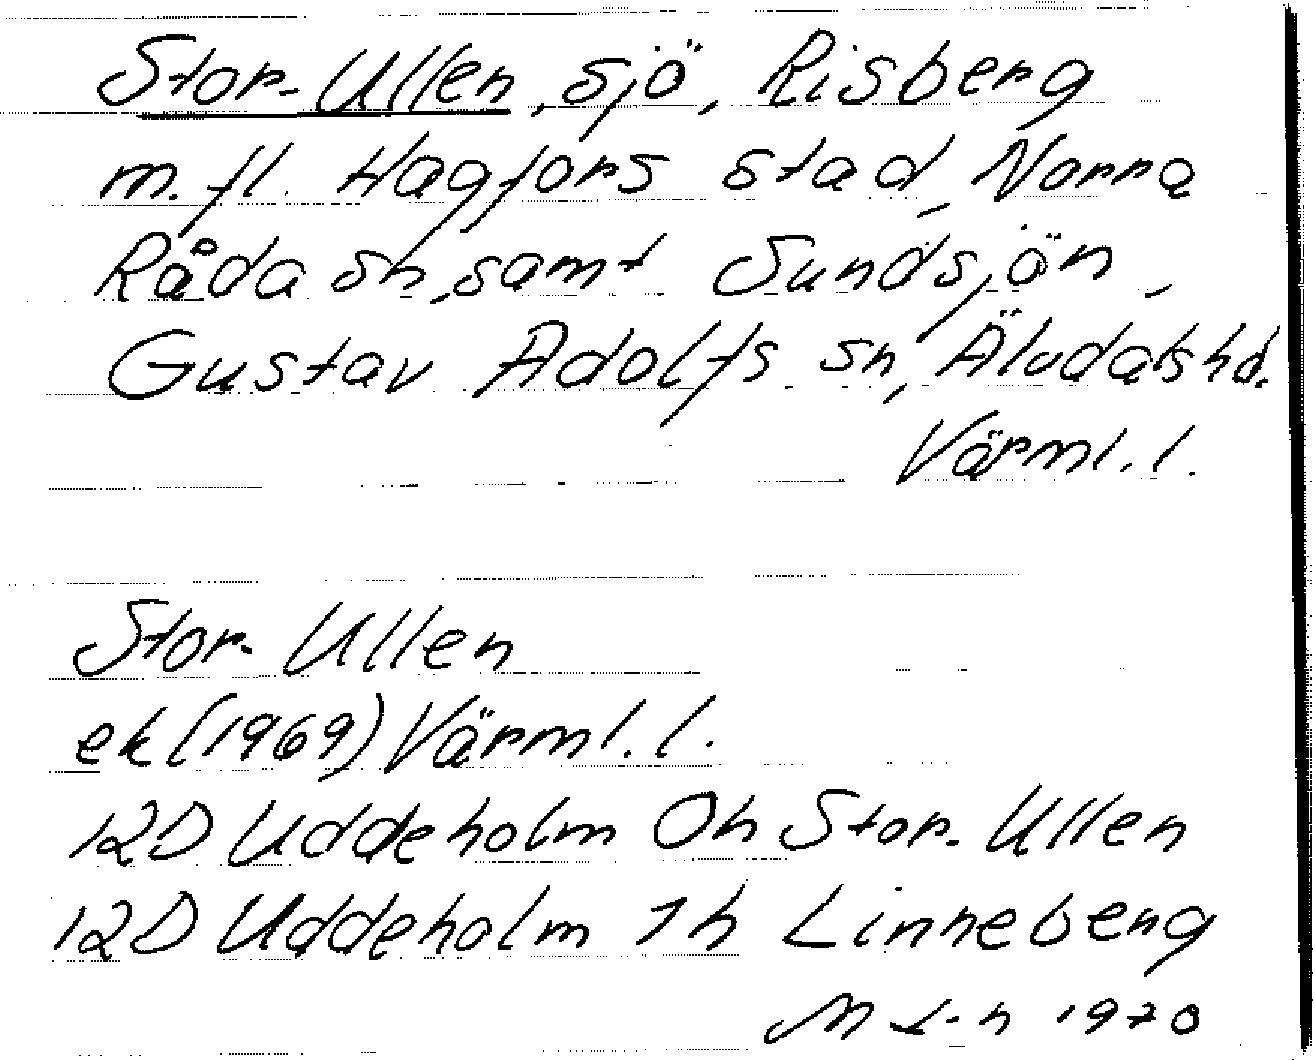 Stor-Ullen, sjö, Risberg
m.fl. Hagfors stad, Norra
Råda sn, samt Sundsjön,
Gustav Adolfs sn, Älvdals hd.
Värml. l.
Stor-Ullen
ek (1969) Värml. l.
12D Uddeholm 0h Stor-Ullen
12D Uddeholm 1h Linneberg
1970